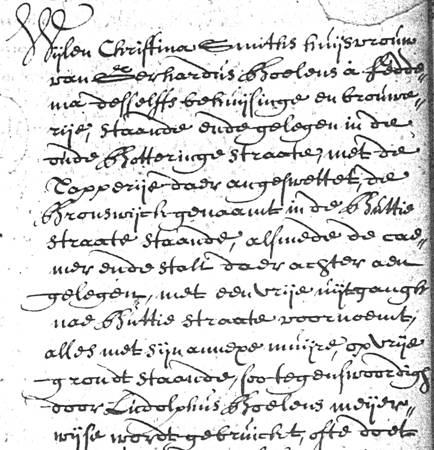 Wijlen Christina Smiths huijsvrouw
van Sr Gerhardus Boelens à Fedde-
ma desselffs behuijsinge en brouwe-
rije, staande ende gelegen in de
oude Botteringe straate, met de
Tapperije daer angeswettet, de
Bronswijck genaamt in de Buttie
straate staande, alsmede de cae-
mer ende stall daer achter aen
gelegen, met een vrije uijtgangh
nae Buttie straate voornoemt,
alles met sijn annexe muijre, op vrije
grondt staande, soo tegenswoordigh
door Ludolphus Boelens meijer-
wijse wordt gebruickt, ofte doet